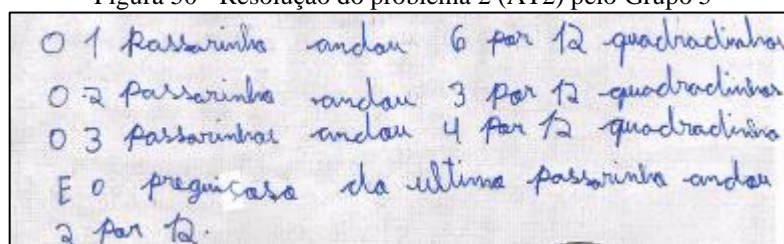 Figura 30 - Resolução do problema 2 (AT2) pelo Grupo 3
O 1 Passarinho andou 6 por 12 quadradinhos
O 2 Passarinho andou 3 por 12 quadradinhos
O 3 Passarinhos andou 4 por 12 quadradinho
E o preguiçoso do ultimo passarinho andou
2 por 12.